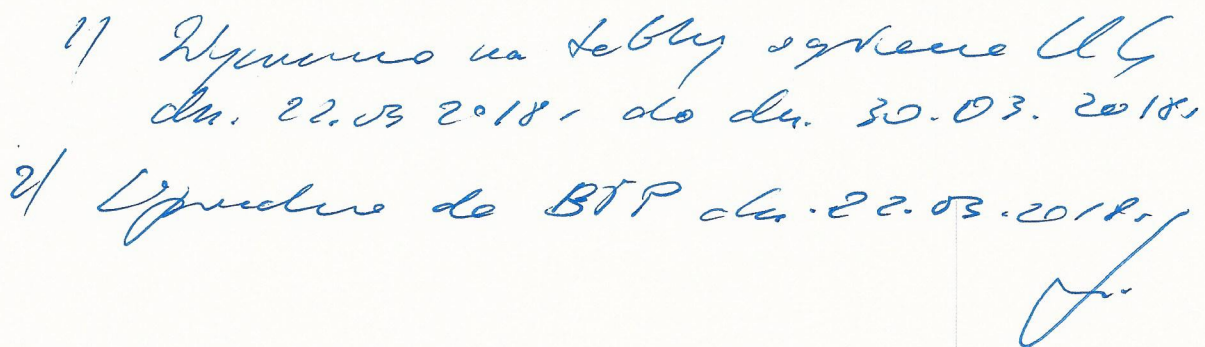 1) Wywieszono na tablicy ogłoszeń UG
dn. 22.03 2018r. do dn. 30.03. 2018r.
2) do BIP dn. 22.03.2018r.